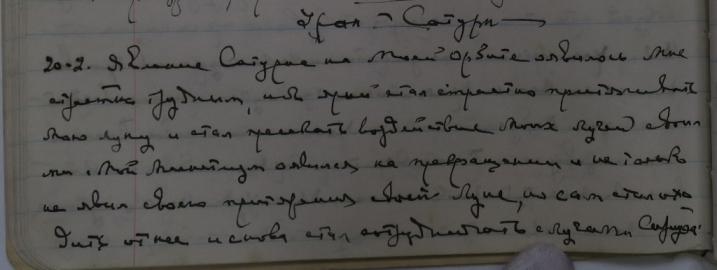 Уран – Сатурн
20-2. Явление Сатурна на моей орбите явилось мне
трудным, ибо стал страстно притягивать
мою луну и стал пресекать воздействие моих лучей своим
ми. Мой магнетизм явился на превращении и не только
не явил своего притяжения своей луне, но сам стал ухо
дить от нее и снова стал сотрудничать с лучами Сатурна.